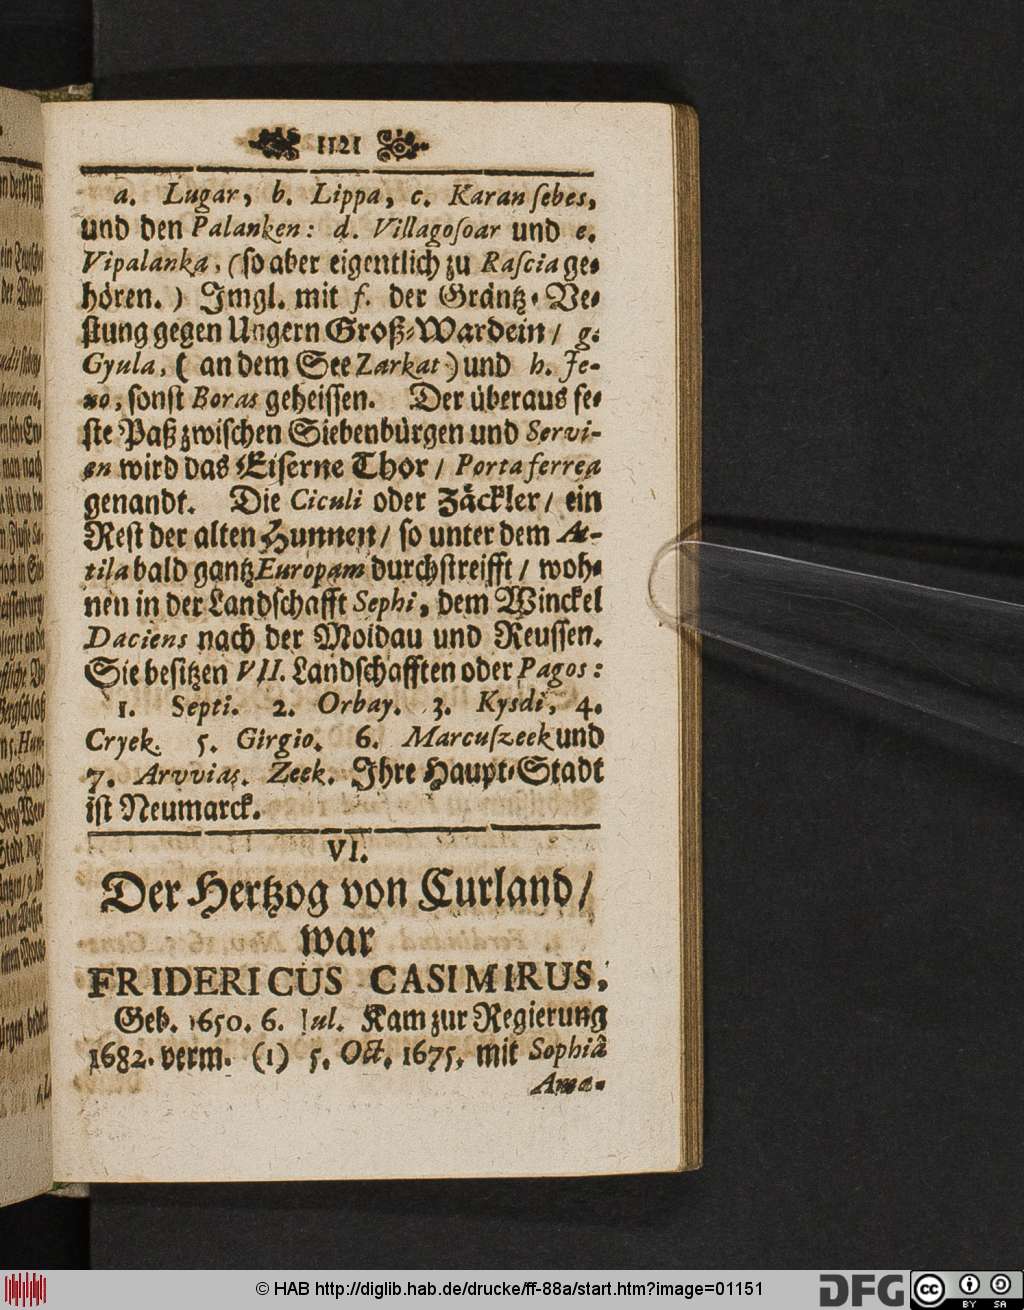 1121
a. Lugar, b. Lippa, c. Karansebes,
und den Palanken: d. Villagosoar und e.
Vipalanka, (so aber eigentlich zu Rascia ge-
hören.) Imgl. mit f. der Gräntz-Ve-
stung gegen Ungern Groß-Wardein/ g.
Gyula, (an dem See Zarkat) und h. Je-
no, sonst Boras geheissen. Der überaus fe-
ste Paß zwischen Siebenbürgen und Servi-
en wird das Eiserne Thor/ Porta ferrea
genandt. Die Ciculi oder Zäckler/ ein
Rest der alten Hunnen/ so unter dem At-
tila bald gantz Europam durchstreifft/ woh-
nen in der Landschafft Sephi, dem Winckel
Daciens nach der Moldau und Reussen.
Sie besitzen VII. Landschafften oder Pagos:
1. Septi. 2. Orbay. 3. Kysdi, 4.
Cryek. 5. Girgio. 6. Marcuszeek und
7. Arvvias. Zeek. Ihre Haupt-Stadt
ist Neumarck.
VI.
Der Hertzog von Curland/
war
FRIDERICUS CASIMIRUS.
Geb. 1650. 6. Jul. Kam zur Regierung
1682. verm. (1) 5. Oct. 1675, mit Sophiâ
Ama-
© HAB http://diglib.hab.de/drucke/ff-88a/start.htm?image=01151
DFG
cc BY SA